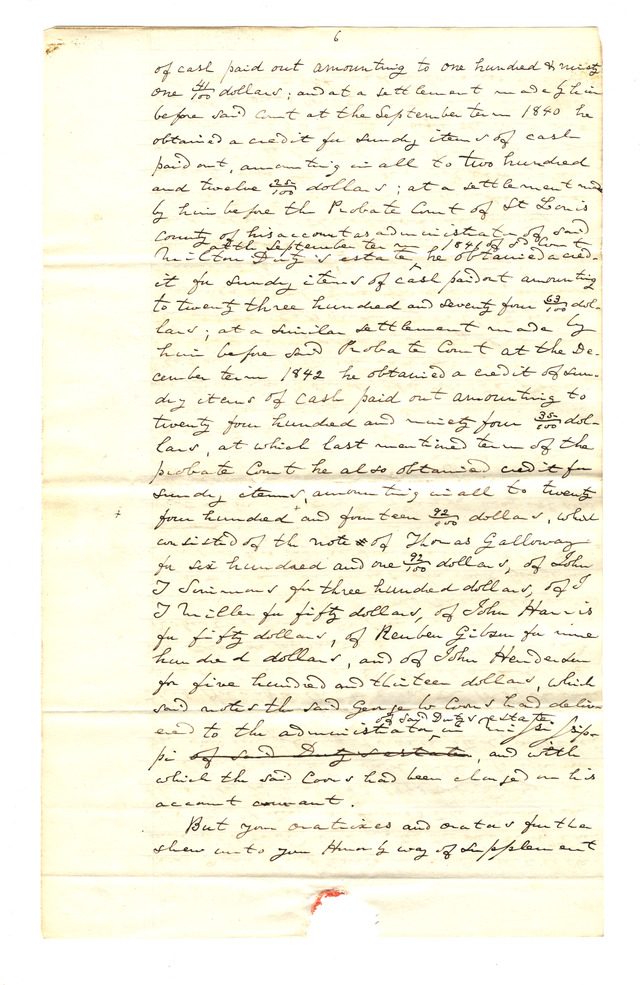 6
of cash paid out amounting to one hundred & ninety
one 41/100 dollars; and at a settlement made by him
before said Court at the September term 1840 he
obtained a credit for sundry items of cash
paid out, amounting in all to two hundred
and twelve 25/100 dollars; at a settlement made
by him before the Probate Court of St Louis
County of his account as administrator of said
at the September term 1841 of sd Court
Milton Duty's estate, he obtained a cred-
it for sundry items of cash paid out amounting
to twenty three hundred and seventy four 63/100 dol-
lars; at a similar settlement made by
him before said Probate Court at the De-
cember term 1842 he obtained a credit of sun-
dry items of cash paid out amounting to
twenty four hundred and ninety four 35/100 dol-
lars, at which last mentioned term of the
probate Court he also obtained credit for
sundry items, amounting in all to twenty
four hundred and fourteen 92/100 dollars, which
consisted of the note of Thomas Galloway
for six hundred and one 92/100 dollars, of John
T Simmons for three hundred dollars, of J
T Miller for fifty dollars, of John Harris
for fifty dollars, of Reuben Gibson for nine
hundred dollars, and of John Henderson
for five hundred and thirteen dollars, which
said notes the said George W Coons had deliv
of said Duty's estate
ered to the administrator, in Mississip-
pi of said Duty's estate, and with
which the said Coons had been charged in his
account courant.
But your oratrixes and orators further
shew unto your Honor by way of supplement